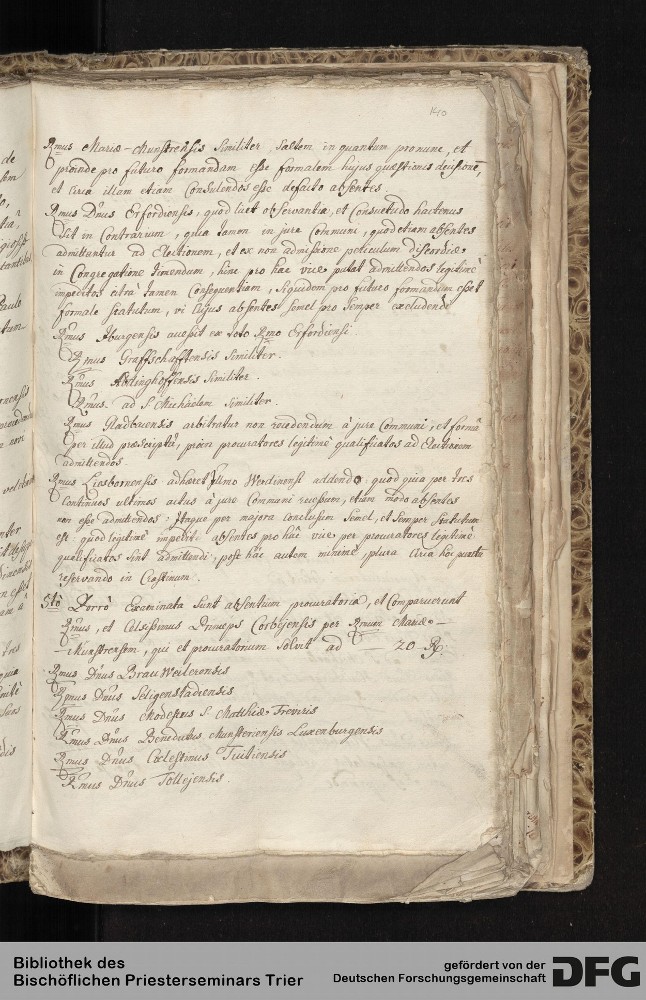 140
Rmus Mariæ-Munstrensis similiter, saltem in quantum pronunc, et
proinde pro futuro formandam esse formalem hujus quæstionis decisionē,
et circa illam etiam Consulendos esse defacto absentes.
Rmus D'nus Erfordiensis, quod licet observantia, et Consuetudo hactenus
sit in Contrarium, quia tamen in jure communi, quod etiam absentes
admittantur ad Electionem, et ex non admissione periculum discordiæ
in Congregatione timendum, hinc pro hac vice putat admittendos legitimè
impeditos citrà tamen Consequentiam, siquidem pro futuro formandum esset
formale statutum, vi cujus absentes semel pro semper excludendi
Rmus Iburgensis accessit ex voto Rmo Erfordiensi
Rmus Graffschafftensis Similiter.
Rmus Abdinghoffensis similiter.
Rmus ad S. Michaëlem Similiter.
Rmus Gladbacensis arbitratur non recedendum à jure Communi, et formā
per illud præscriptâ, proin procuratores legitimè qualificatos ad Electionem
admittendos.
Rmus Liesbornensis adhæret Rmo Werdinensi addendo: quod quia per tres
Continuos ultimos actus à jure Communi recessum, etiam modo absentes
non esse admittendos: Itaque per majora conclusum semel, et semper statutum
est: quod legitimè impediti absentes pro hâc vice per procuratores legitimè
qualificatos sint admittendi, post hâc autem minimè, plura circa hoc puncta
reservando in Crastinum.
5tò Porrò Examinata sunt absentium procuratoria, et Comparuerunt
Rmus, et Celsissimus Princeps Corbejensis per Rmum Mariæ-
-Munstrensem, qui et procuratorium solvit ad — 20 R:
Rmus D'nus BrauWeilerensis
Rmus Dnus Seligenstadiensis
Rmus Dnus Modestus S. Matthiæ Treviris
Rmus Dnus Benedictus Munsteriensis Luxenburgensis
Rmus Dnus Cœlestinus Tuitiensis
Rmus Dnus Tollejensis.
Bibliothek des
Bischöflichen Priesterseminars Trier
gefördert von der
Deutschen Forschungsgemeinschaft
DFG